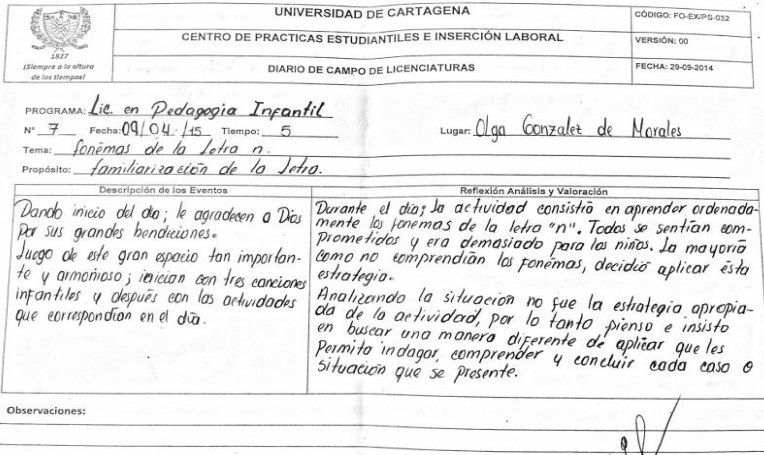 UNIVERSIDAD DE CARTAGENA
CÓDIGO: FO-EX/PS-032
CENTRO DE PRACTICAS ESTUDIANTILES E INSERCIÓN LABORAL
VERSIÓN: 00
1827
¡Siempre a la altura
de los tiempos!
DIARIO DE CAMPO DE LICENCIATURAS
FECHA: 29-09-2014
PROGRAMA: Lic. en Pedagogia Infantil
N° 7 Fecha: 09/04/15 Tiempo: 5 Lugar: Olga Gonzalez de Morales
Tema: fonémas de la letra n.
Propósito: familiarización de la letra.
Descripción de los Eventos
Dando inicio del dia; le agradecen a Dios
por sus grandes bendiciones.
Luego de este gran espacio tan importan-
te y armonioso; inician con tres canciones
infantiles y después con las actividades
que correspondian en el dia.
Reflexión Análisis y Valoración
Durante el dia; la actividad consistia en aprender ordenada-
mente los fonemas de la letra "n". Todos se sentian com-
prometidos y era demasiado para los niños. La mayoria
como no comprendian los fonémas, decidió aplicar ésta
estrategia.
Analizando la situación no fue la estrategia apropia-
da de la actividad, por lo tanto pienso e insisto
en buscar una manera diferente de aplicar que les
permita indagar, comprender y concluir cada caso o
situación que se presente.
Observaciones: